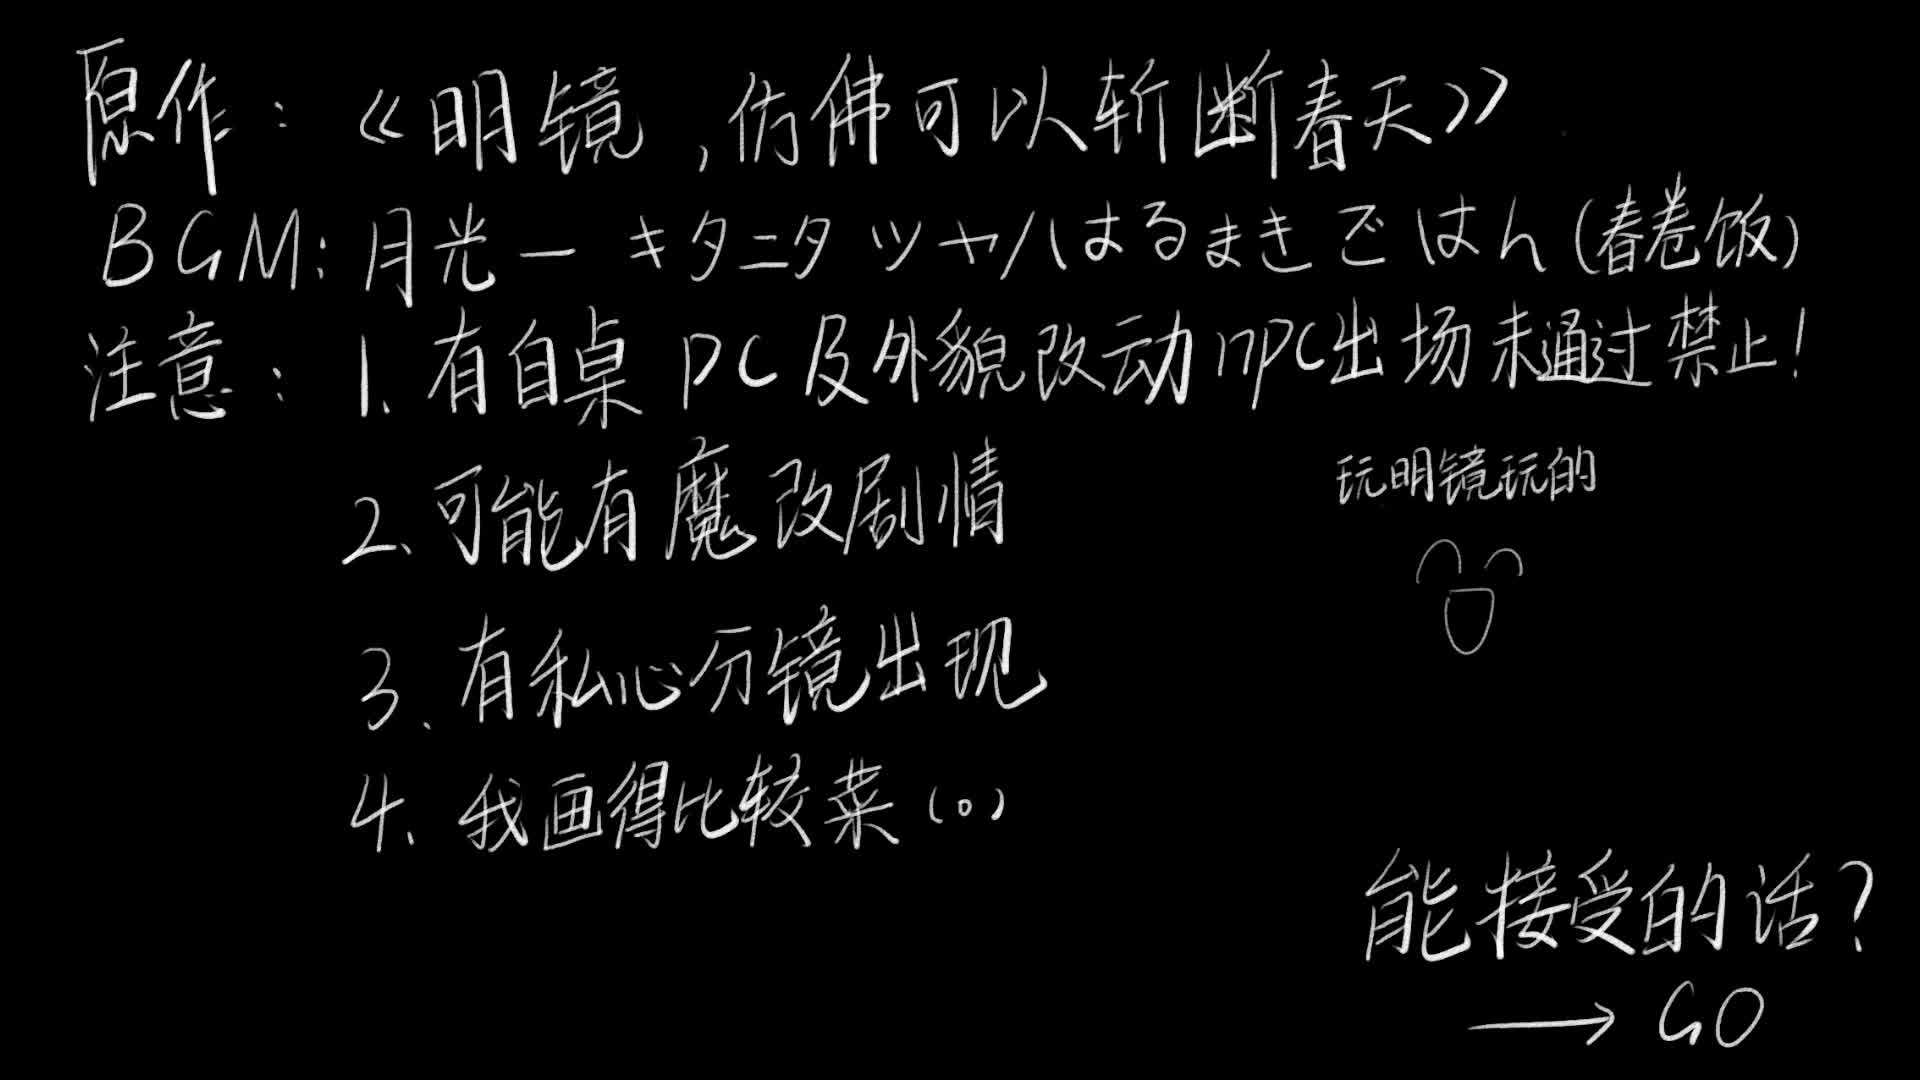 原作：《明镜，仿佛可以斩断春天》
BGM：月光—キタニタツヤ/はるまきごはん(春卷饭)
注意：1.有自桌PC及外貌改动npc出场未通过禁止！
2.可能有魔改剧情
玩明镜玩的
3.有私心分镜出现
4.我画得比较菜(。)
能接受的话？
→GO